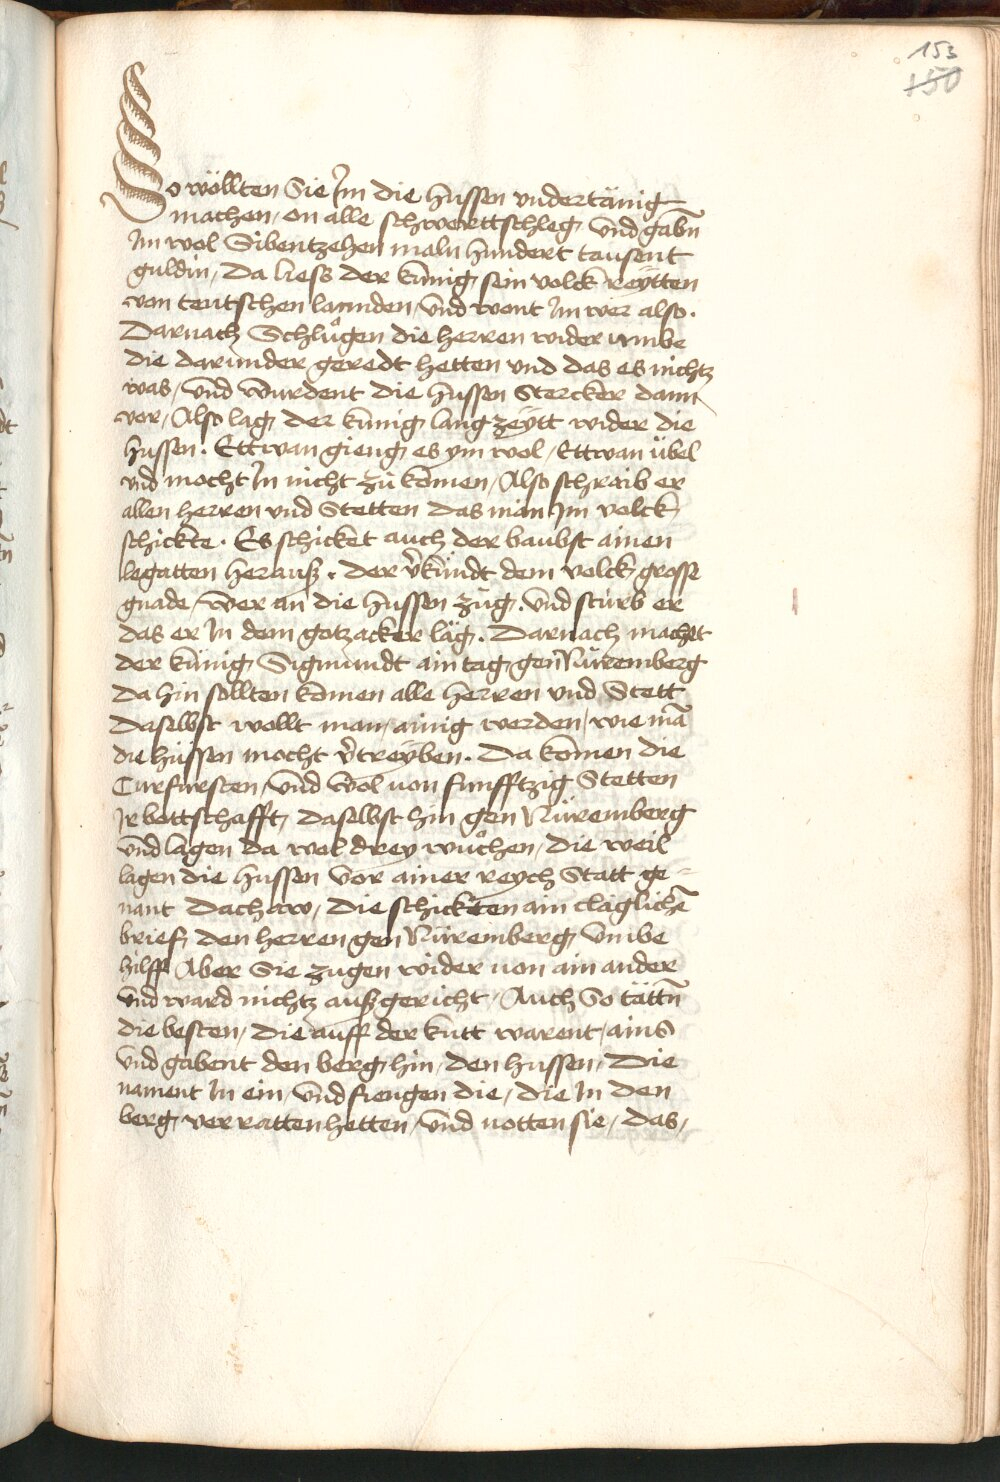 153
150
So wöllten Sie Jm die hussen vndertänig
machen, on alle schwerttschleg, vnd gabn̄
Jm wol Sibentzehen maln hundert tausent
guldin, Da liess der künig sein volck reytten
von teutschen lannden, vnd wont Jm wer also.
Darnach Schlůgen die herren wider vmbe
die darunder geredt hetten vnd das es nichtz
was, vnd wurdent die hussen Stercker dann
vor, Also lag, der künig lang zeytt wider die
hussen. Ettwan gieng es ym wol, Ettwan übel
vnd mocht Jn nicht zů komen, Also schraib er
allen herren vnd Stetten das man Jm volck
schickte. Es schicket auch der baubst ainen
legatten herauß. der v̄kündt dem volck grosse
gnade, wer an die hussen züg. vnd sturb er
das er Jn dem gotzacker läg. Darnach machet
der künig Sigmundt ain tag gen Nüremberg
Da hin sollten komen alle herren vnd Stett
Daselbst wollt man, ainig werden, wie mā
die hussen mocht v̄treyben. Da komen die
Curfursten, vnd wol von funfftzig Stetten
Jr bottschafft, daselbst hin gen Nüremberg
vnd lagen da wol drey wůchen, die weil
lagen die hussen vor ainer reych Statt ge-
nant Dachaw, die schickten ain cläglichē
brief, den herren gen Nüremberg, vmbe
hilff Aber Sie zugen wider von ain ander
vnd ward nichtz außgericht, Auch So tättn̄
die besten, die auff der kutt warent, ains
vnd gabent den berg, hin, den hussen, Die
nament Jn ein, vnd fiengen die, die Jn den
berg, verratten hetten, vnd notten sie, das,